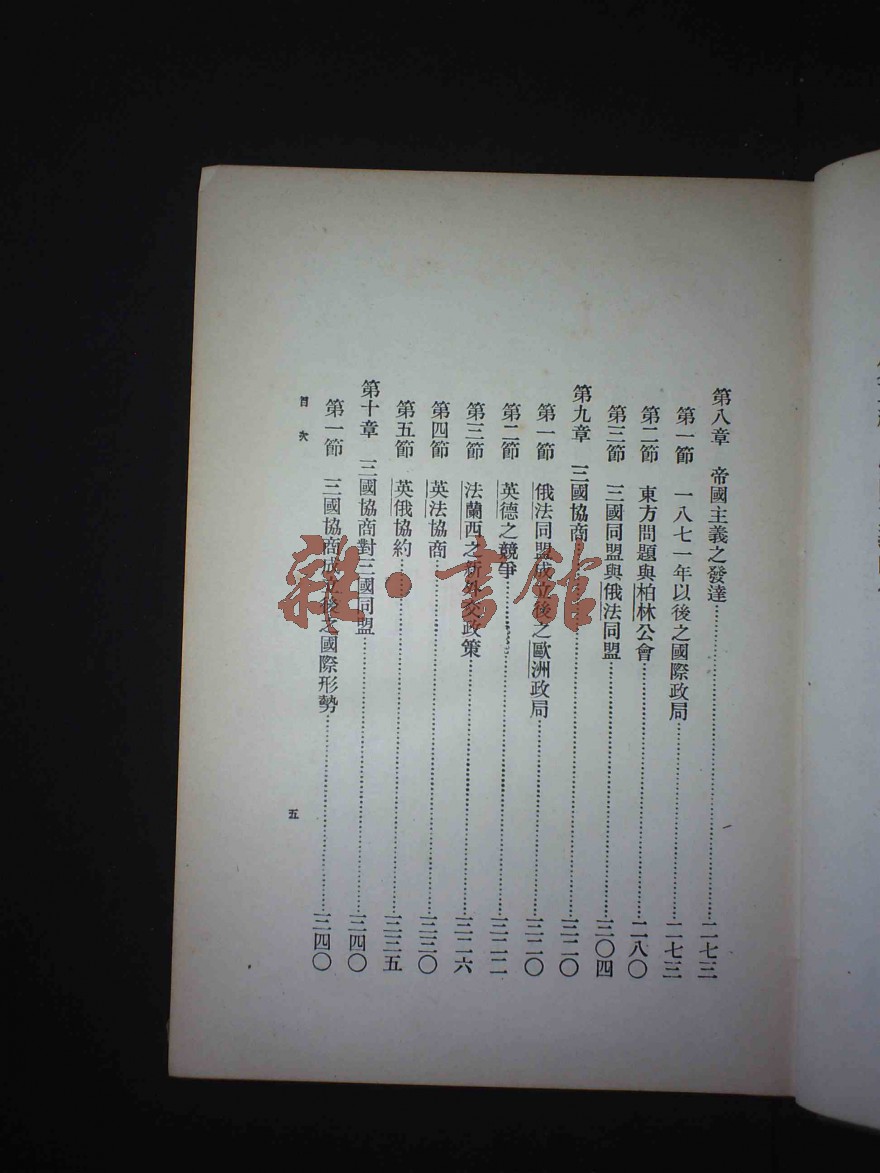 第八章　帝國主義之發達……二七三
第一節　一八七一年以後之國際政局……二七三
第二節　東方問題與柏林公會……二八〇
第三節　三國同盟與俄法同盟……三〇四
第九章　三國協商……三二〇
第一節　俄法同盟成立後之歐洲政局……三二〇
第二節　英德之競爭……三二二
第三節　法蘭西之新外交政策……三二六
第四節　英法協商……三三〇
第五節　英俄協約……三三五
第十章　三國協商對三國同盟……三四〇
第一節　三國協商成立後之國際形勢……三四〇
目次
五
雜·書館